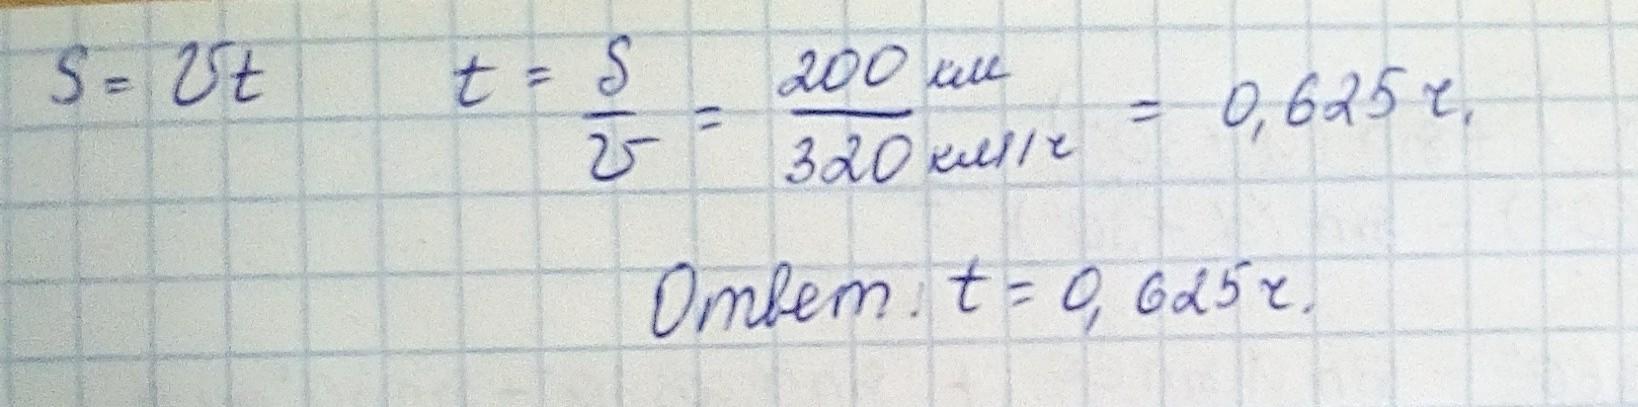 S = υt t = S/υ = 200 км / 320 км/ч = 0,625 ч.
Ответ: t = 0,625 ч.